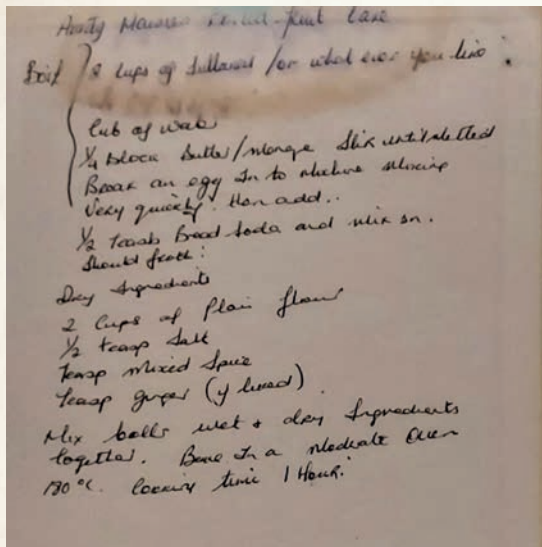 Aunty Maureen boiled-fruit Cake
Boil 2 Cups of Sultanas / or what ever you like
Cup of water
1/4 block butter/marge Stir until melted
Break an egg In to mixture Mixing
Very quickly. then add..
1/2 teasp Bread Soda and mix in.
Should froth!
Dry Ingredients
2 Cups of Plain flour
1/2 teasp Salt
teasp mixed Spice
teasp ginger (if liked).
Mix both wet + dry Ingredients
together. Bake In a Moderate Oven
180°C. Cooking time 1 Hour.